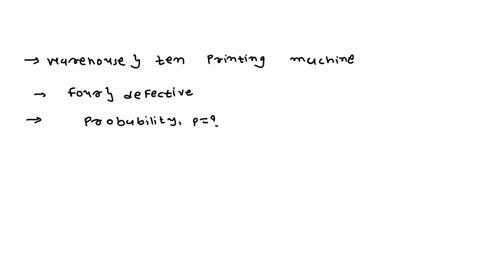 → warehouse} ten printing machine
→ four} defective
→ Probability, p=?